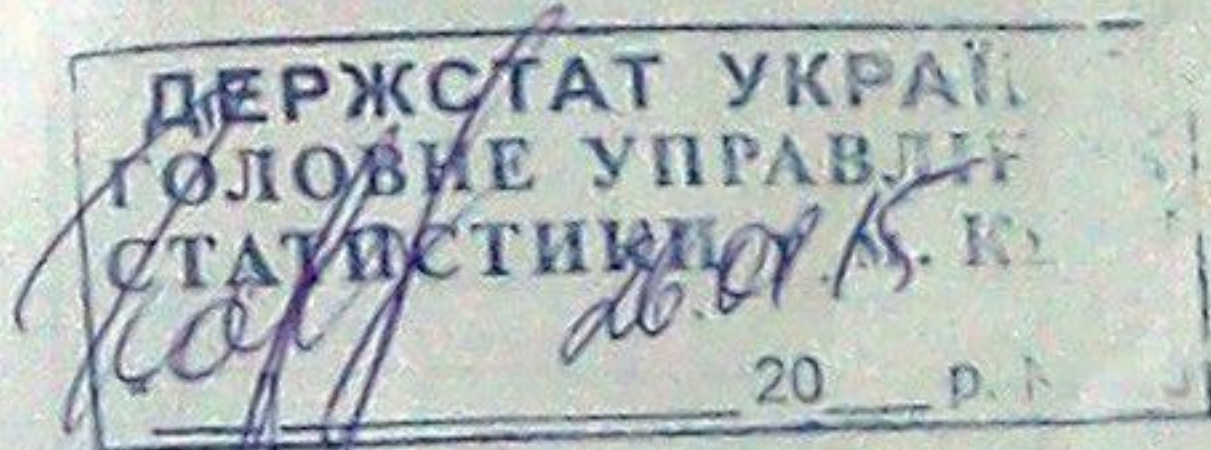 ДЕРЖСТАТ УКРАЇ
ГОЛОВНЕ УПРАВЛІН
СТАТИСТИКИ У М. К
26.01.15
20 р.